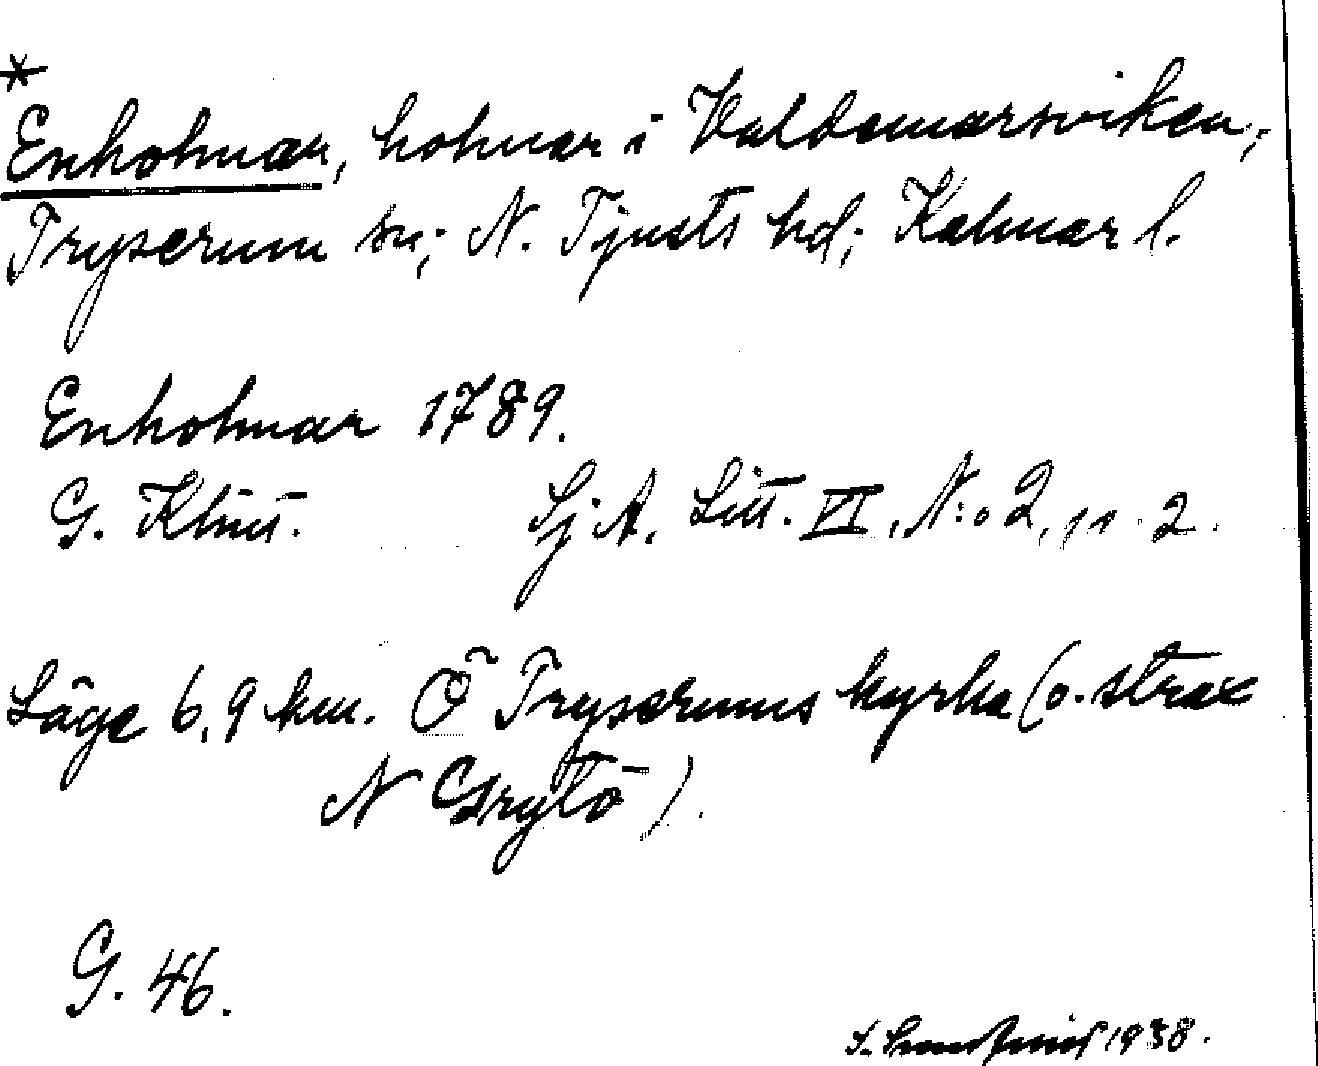 *
Enholmar, holmar i Valdemarsviken;
Tryserum sn; N. Tjusts hd; Kalmar l.
Enholmar 1789.
G. Klint. Sj A. Litt. VI, N:o 2, 2.
Läge 6,9 km. Ö Tryserums kyrka (o. strax
N Grytö).
G. 46.
S. 1938.